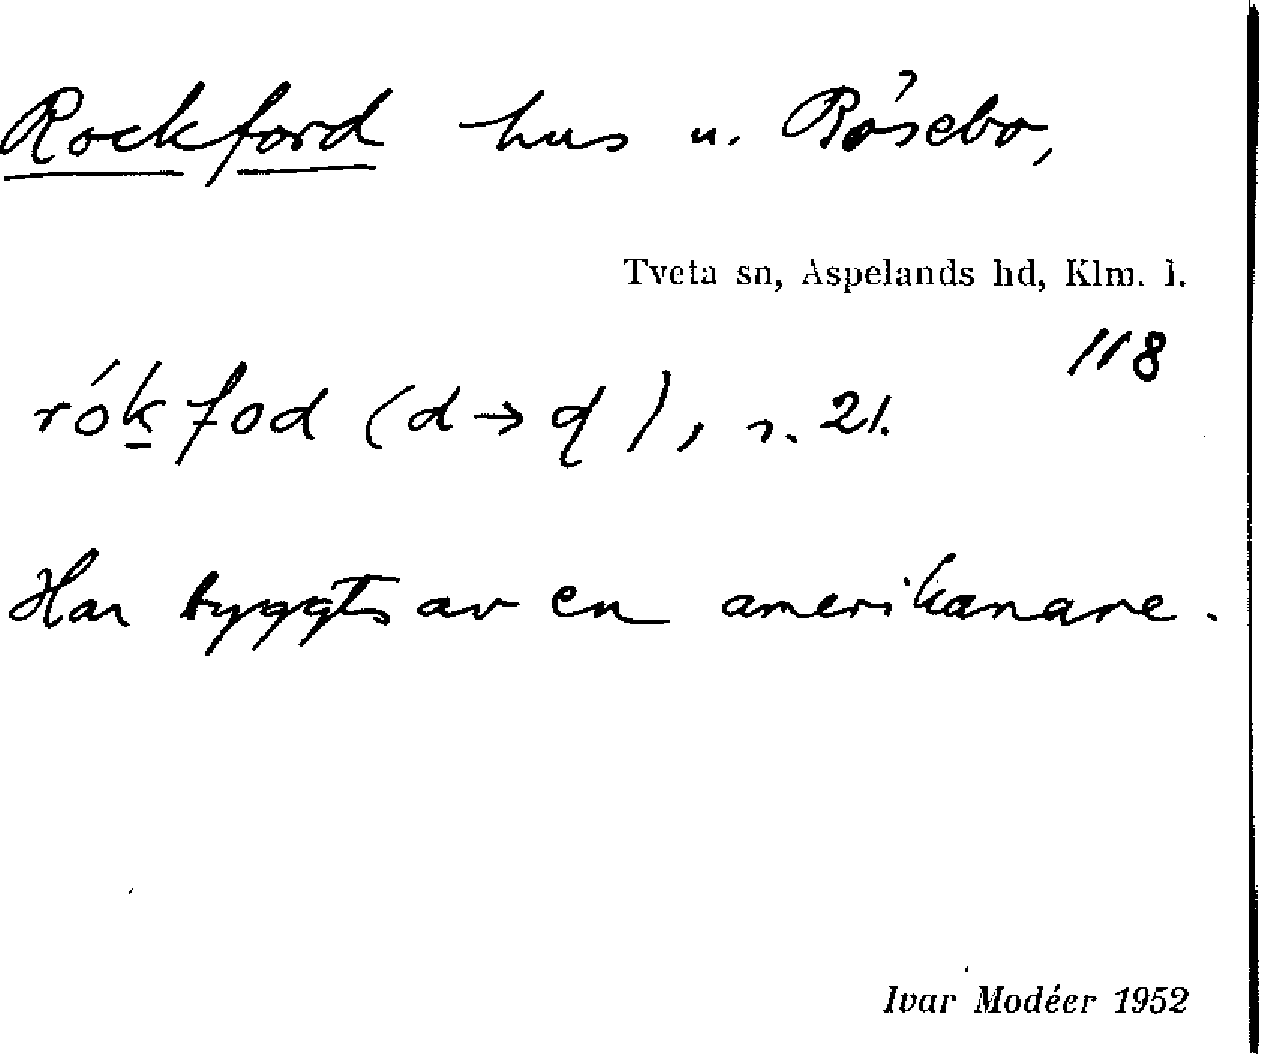 Rockford hus u. Rösebo,
Tveta sn, Aspelands hd, Klm. l.
118
rók fod (d→ɖ), s. 21.
Har byggts av en amerikanare.
Ivar Modéer 1952